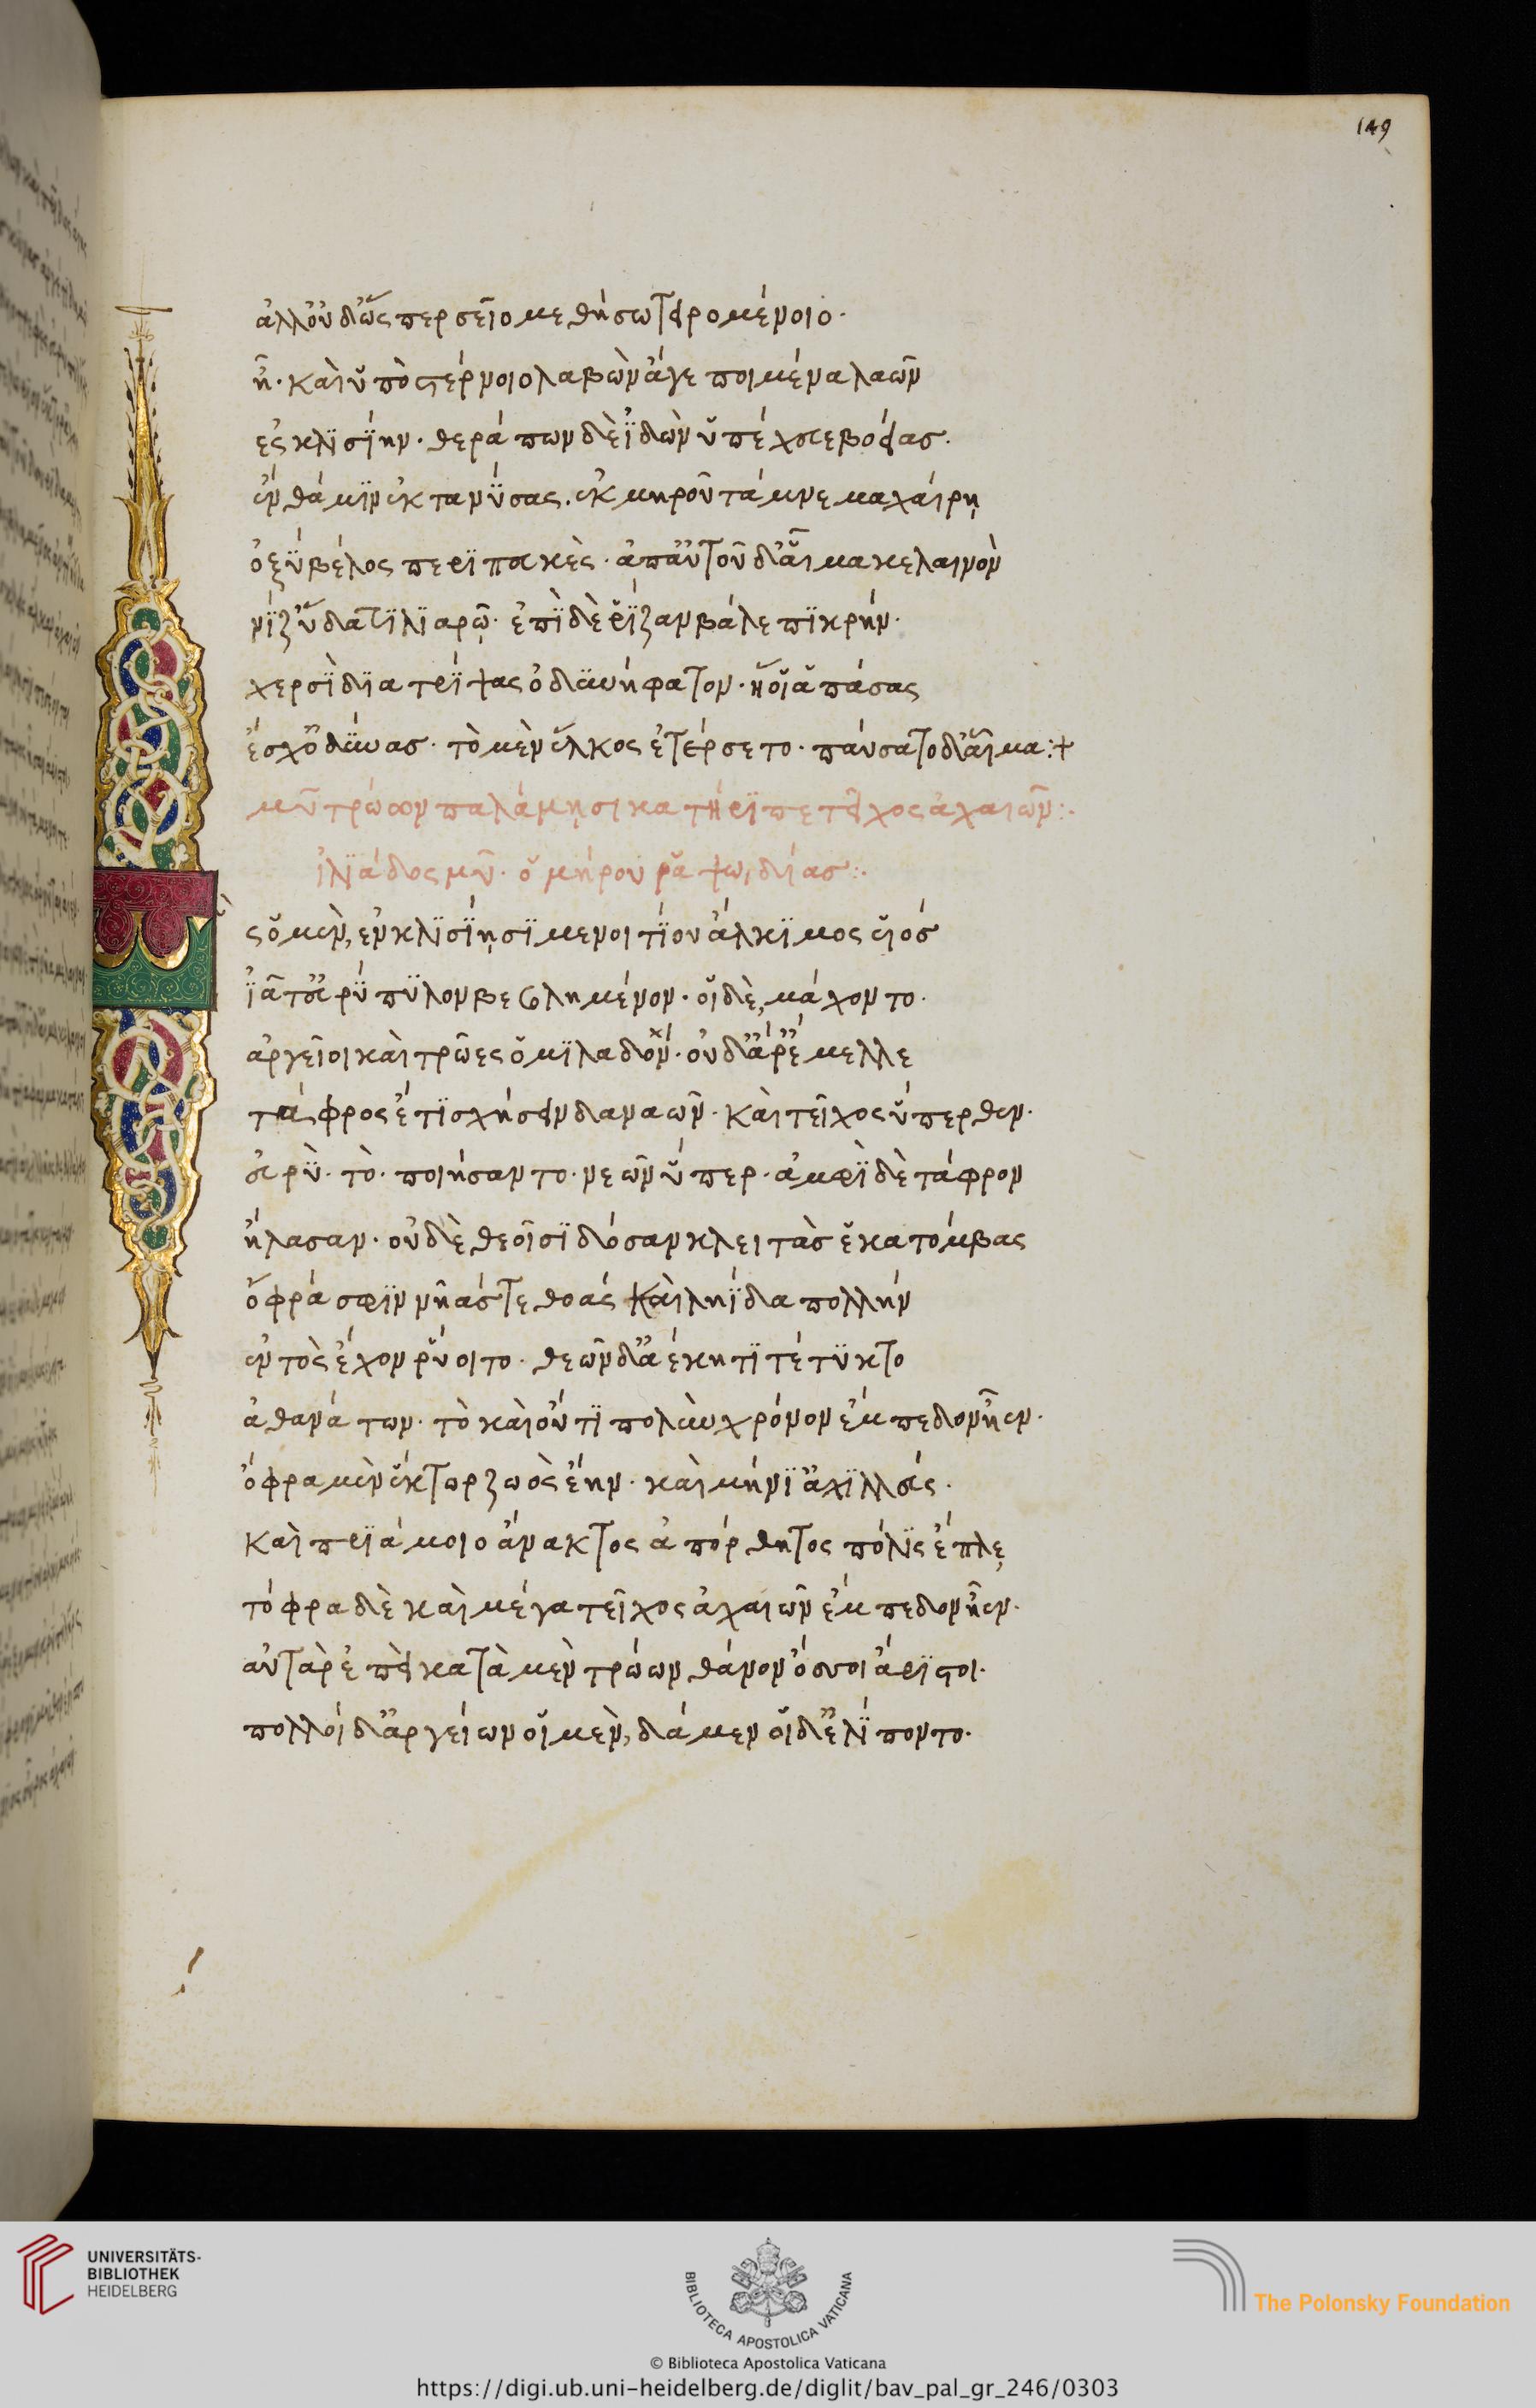 149
ἀλλ' οὐδ' ὧς περ σεῖο μεθήσω τειρομένοιο·
ἦ· καὶ ὑπὸ στέρνοιο λαβὼν ἄγε ποιμένα λαῶν
ἐς κλισίην· θεράπων δὲ ἰδὼν ὑπέχευε βοείας.
ἔνθά μιν ἐκτανύσας. ἐκ μηροῦ τάμνε μαχαίρῃ
ὀξὺ βέλος περιπευκὲς· ἀπ' αὐτοῦ δ' αἷμα κελαινὸν
νίζ' ὕδατι λιαρῷ· ἐπὶ δὲ ῥίζαν βάλε πικρήν·
χερσὶ διατρίψας ὀδυνήφατον· ἥ οἱ ἁπάσας
ἔσχ' ὀδύνας· τὸ μὲν ἕλκος ἐτέρσετο· παύσατο δ' αἷμα:+
μῦ τρώων παλάμῃσι κατήριπε τεῖχος ἀχαιῶν:.
ἰλιάδος μῦ· ὁμήρου ῥαψωιδίας:.
ς ὁ μὲν, ἐν κλισίῃσι μενοιτίου ἄλκιμος υἱός
ἰᾶτ' εὐρύπυλον βεβλημένον· οἱ δὲ, μάχοντο·
ἀργεῖοι καὶ τρῶες ὁμιλαδόν· οὐδ' ἄρ' ἔμελλε
τάφρος ἔτι σχήσειν δαναῶν· καὶ τεῖχος ὕπερθεν·
εὐρὺ· τὸ· ποιήσαντο· νεῶν ὕπερ· ἀμφὶ δὲ τάφρον
ἤλασαν· οὐδὲ, θεοῖσι δόσαν κλειτὰς ἑκατόμβας
ὄφρά σφιν νῆάς τε θοάς καὶ ληΐδα πολλήν
ἐντὸς ἔχον ῥύοιτο· θεῶν δ' ἀέκητι τέτυκτο
ἀθανάτων· τὸ καὶ οὔτι πολὺν χρόνον ἔμπεδον ἦεν·
ὄφρα μὲν ἕκτωρ ζωὸς ἔην· καὶ μήνι' ἀχιλλεύς·
καὶ πριάμοιο ἄνακτος ἀπόρθητος πόλις ἔπλε
τόφρα δὲ καὶ μέγα τεῖχος ἀχαιῶν ἔμπεδον ἦεν·
αὐτὰρ ἐπεὶ κατὰ μὲν τρώων θάνον ὅσσοι ἄριστοι·
πολλοί δ' ἀργείων οἱ μὲν, δάμεν οἱ δ' ἐλίποντο·
UNIVERSITÄTS-
BIBLIOTHEK
HEIDELBERG
BIBLIOTECA APOSTOLICA VATICANA
The Polonsky Foundation
© Biblioteca Apostolica Vaticana
https://digi.ub.uni-heidelberg.de/diglit/bav_pal_gr_246/0303